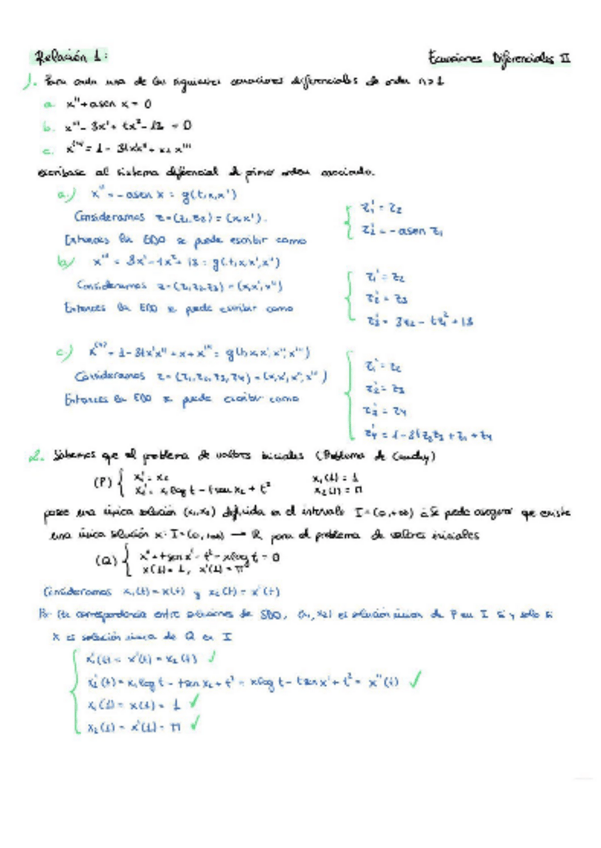 Relación 1: Ecuaciones Diferenciales II
1. Para cada una de las siguientes ecuaciones diferenciales de orden n>1
a. x''+asen x = 0
b. x'''- 3x'+ tx²-13 = 0
c. x⁽⁴⁾ = 1 - 3tx'x''+ x+ x'''
escríbase el sistema diferencial de primer orden asociado.
a.) x'' = -asen x = g(t,x,x')
Consideramos z=(z₁,z₂) = (x,x').
Entonces la EDO se puede escribir como
z₁' = z₂
z₂' = -asen z₁
b) x''' = 3x' - tx² + 13 = g(t,x,x',x'')
Consideramos z=(z₁,z₂,z₃) = (x,x',x'')
Entonces la EDO se puede escribir como
z₁' = z₂
z₂' = z₃
z₃' = 3z₂ - tz₁² + 13
c.) x⁽⁴⁾ = 1 - 3tx'x'' + x + x''' = g(t,x,x',x'',x''')
Consideramos z = (z₁,z₂,z₃,z₄) = (x,x',x'',x''')
Entonces la EDO se puede escribir como
z₁' = z₂
z₂' = z₃
z₃' = z₄
z₄' = 1-3tz₂z₃ + z₁ + z₄
2. Sabemos que el problema de valores iniciales (Problema de Cauchy)
(P) { x₁' = x₂ x₁(1) = 1
x₂' = x₁ log t - t sen x₂ + t² x₂(1) = π
posee una única solución (x₁,x₂) definida en el intervalo I = (0,+∞) ¿Se puede asegurar que existe
una única solución x: I=(0,+∞) → ℝ para el problema de valores iniciales
(Q) { x''+tsen x' - t² - x log t = 0
x(1) = 1, x'(1) = π
Consideramos x₁(t) = x(t) y x₂(t) = x'(t)
Por la correspondencia entre soluciones de SDO, (x₁,x₂) es solución única de P en I si y solo si
x es solución única de Q en I
x₁'(t) = x'(t) = x₂(t) ✓
x₂'(t) = x₁ log t - t sen x₂ + t² = x log t - t sen x' + t² = x''(t) ✓
x₁(1) = x(1) = 1 ✓
x₂(1) = x'(1) = π ✓